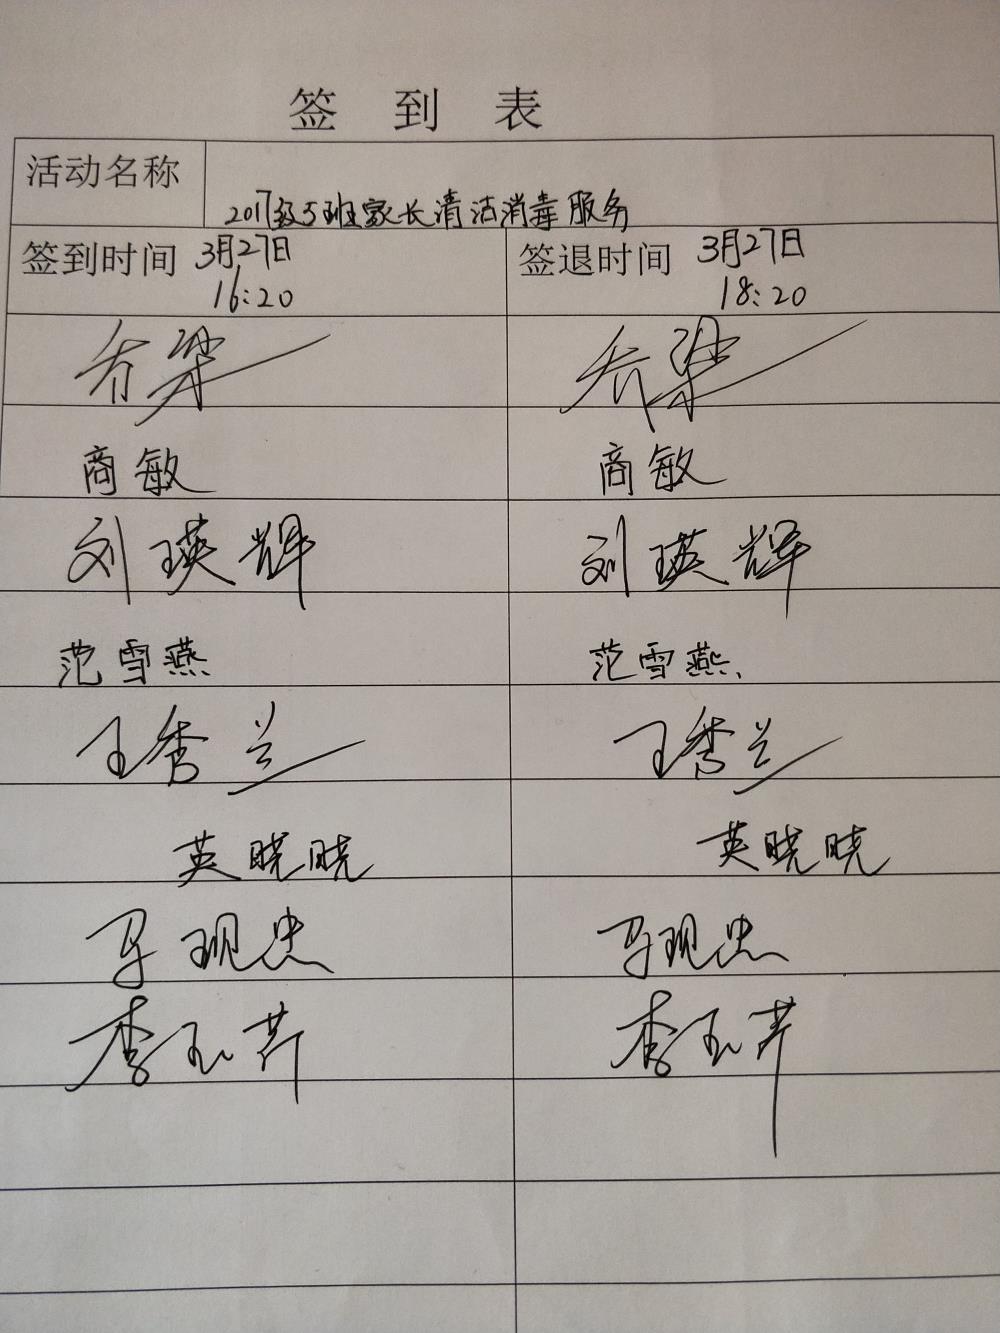 签到表
活动名称
2017级5班家长清洁消毒服务
签到时间 3月27日 签退时间 3月27日
16:20 18:20
乔梁 乔梁
商敏 商敏
刘瑛辉 刘瑛辉
范雪燕 范雪燕
王秀兰 王秀兰
英晓晓 英晓晓
马现忠 马现忠
李玉芹 李玉芹